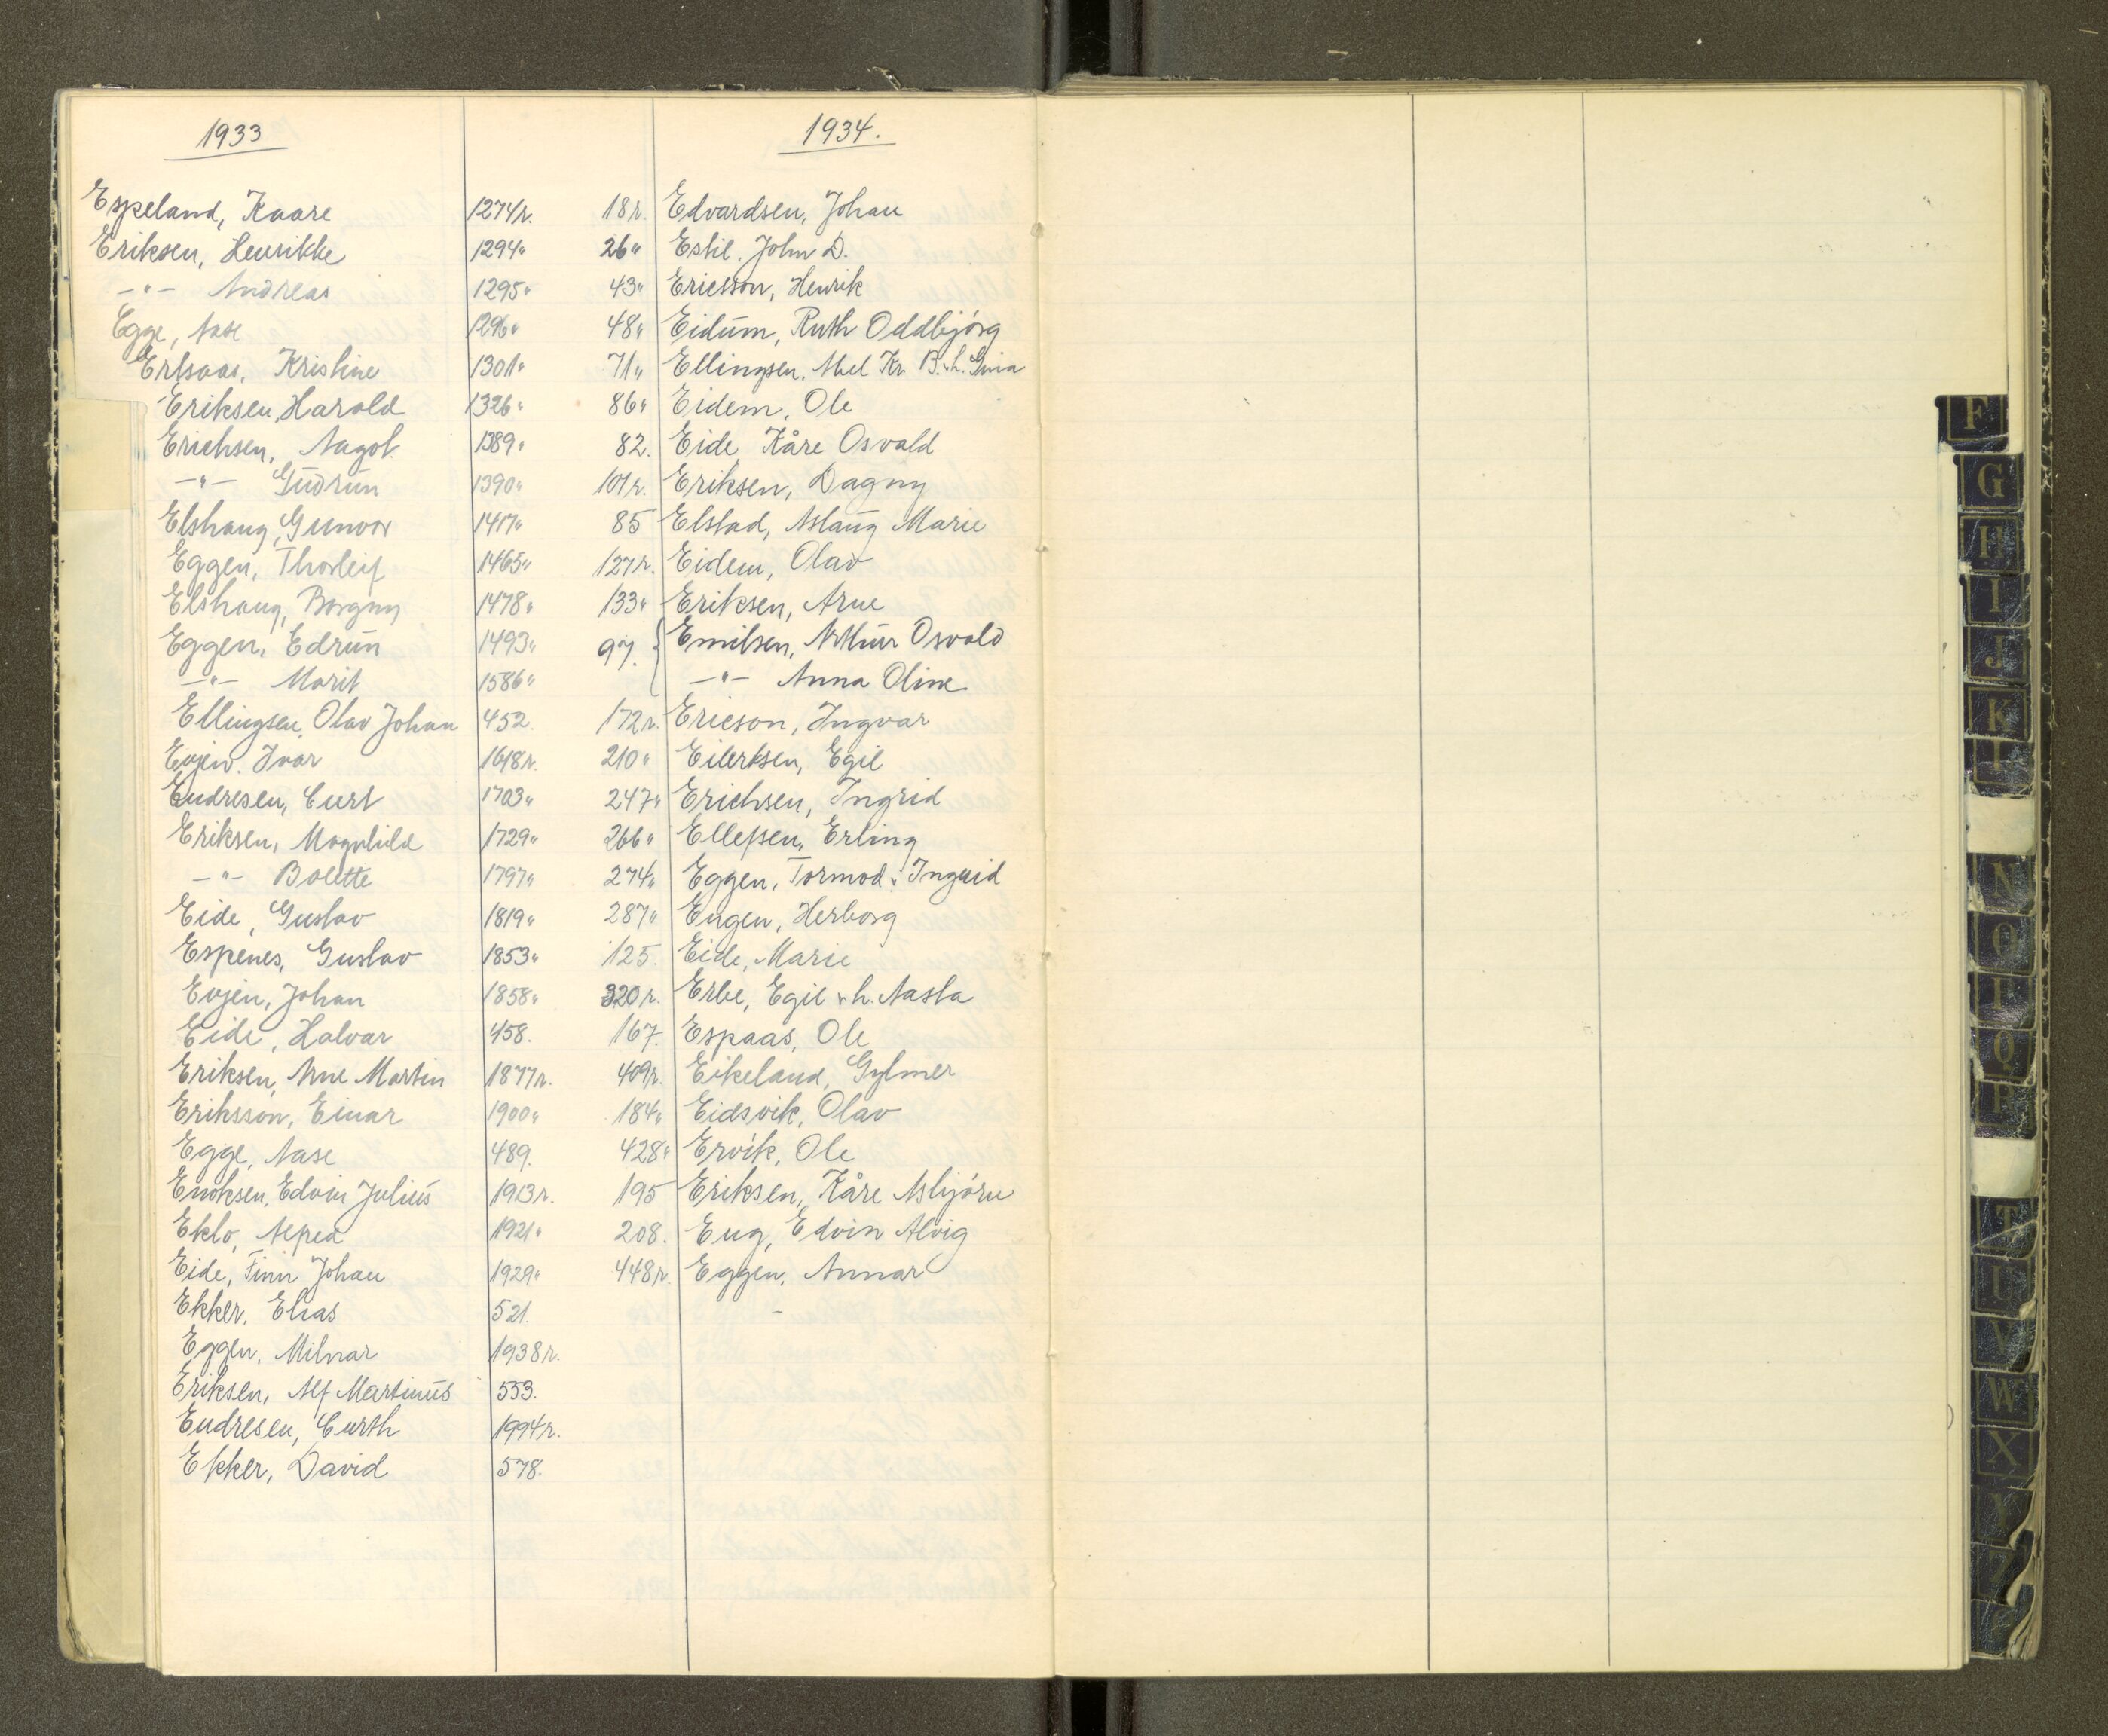 1933
Espeland, Kaare 1274r.
Eriksen, Henrikke 1294"
-"- Andreas 1295"
Egge, Aase 1296"
Ertsaas, Kristine 1301"
Eriksen, Harald 1326"
Erichsen, Aagot 1389"
-"- Gudrun 1390"
Elshaug, Gunvor 1417"
Eggen, Thorleif 1465"
Elshaug, Borgny 1478"
Eggen, Edrun 1493"
-"- Marit 1586"
Ellingsen, Olav Johan 452.
Evjen. Ivar 1618r.
Endresen, Curt 1703"
Eriksen, Magnhild 1729"
-"- Bolette 1797"
Eide, Gustav 1819"
Espenes, Gustav 1853"
Evjen, Johan 1858"
Eide, Halvar 458.
Eriksen, Arne Martin 1877r.
Eriksson, Einar 1900"
Egge, Aase 489.
Enoksen, Edvin Julius 1913r.
Eklo, Alfred 1921"
Eide, Finn Johan 1929"
Ekker, Elias 521.
Eggen, Milnar 1938r.
Eriksen, Alf Martinus 553.
Endresen, Curth 1994r.
Ekker, David 578.
1934.
18r. Edvardsen, Johan
26" Estil. John D.
43" Ericsson, Henrik
48" Eidum, Ruth Oddbjörg
71" Ellingsen, Abel Kr. B. & h. Gina
86" Eidem, Ole
82. Eide, Kåre Osvald
107r. Eriksen, Dagny
85 Elstad, Aslaug Marie
127r. Eidem, Olav
133" Eriksen, Arne
97. { Emilsen, Arthur Osvald
-"- Anna Oline
172r. Ericson, Ingvar
210" Eilertsen, Egil
247" Erichsen, Ingrid
266" Ellefsen, Erling
274" Eggen, Tormod & Ingrid
287" Engen, Herborg
125. Eide, Marie
320r. Erbe, Egil & h. Aasta
167. Espaas, Ole
409r. Eikeland, Gylmer
184" Eidsvik, Olav
428" Ervik, Ole
195 Eriksen, Kåre Asbjörn
208. Eug, Edvin Alvig
448r. Eggen, Annar
F
G
H
I
J
K
L
N
O
P
Q
R
T
U
V
W
X
Y
Z